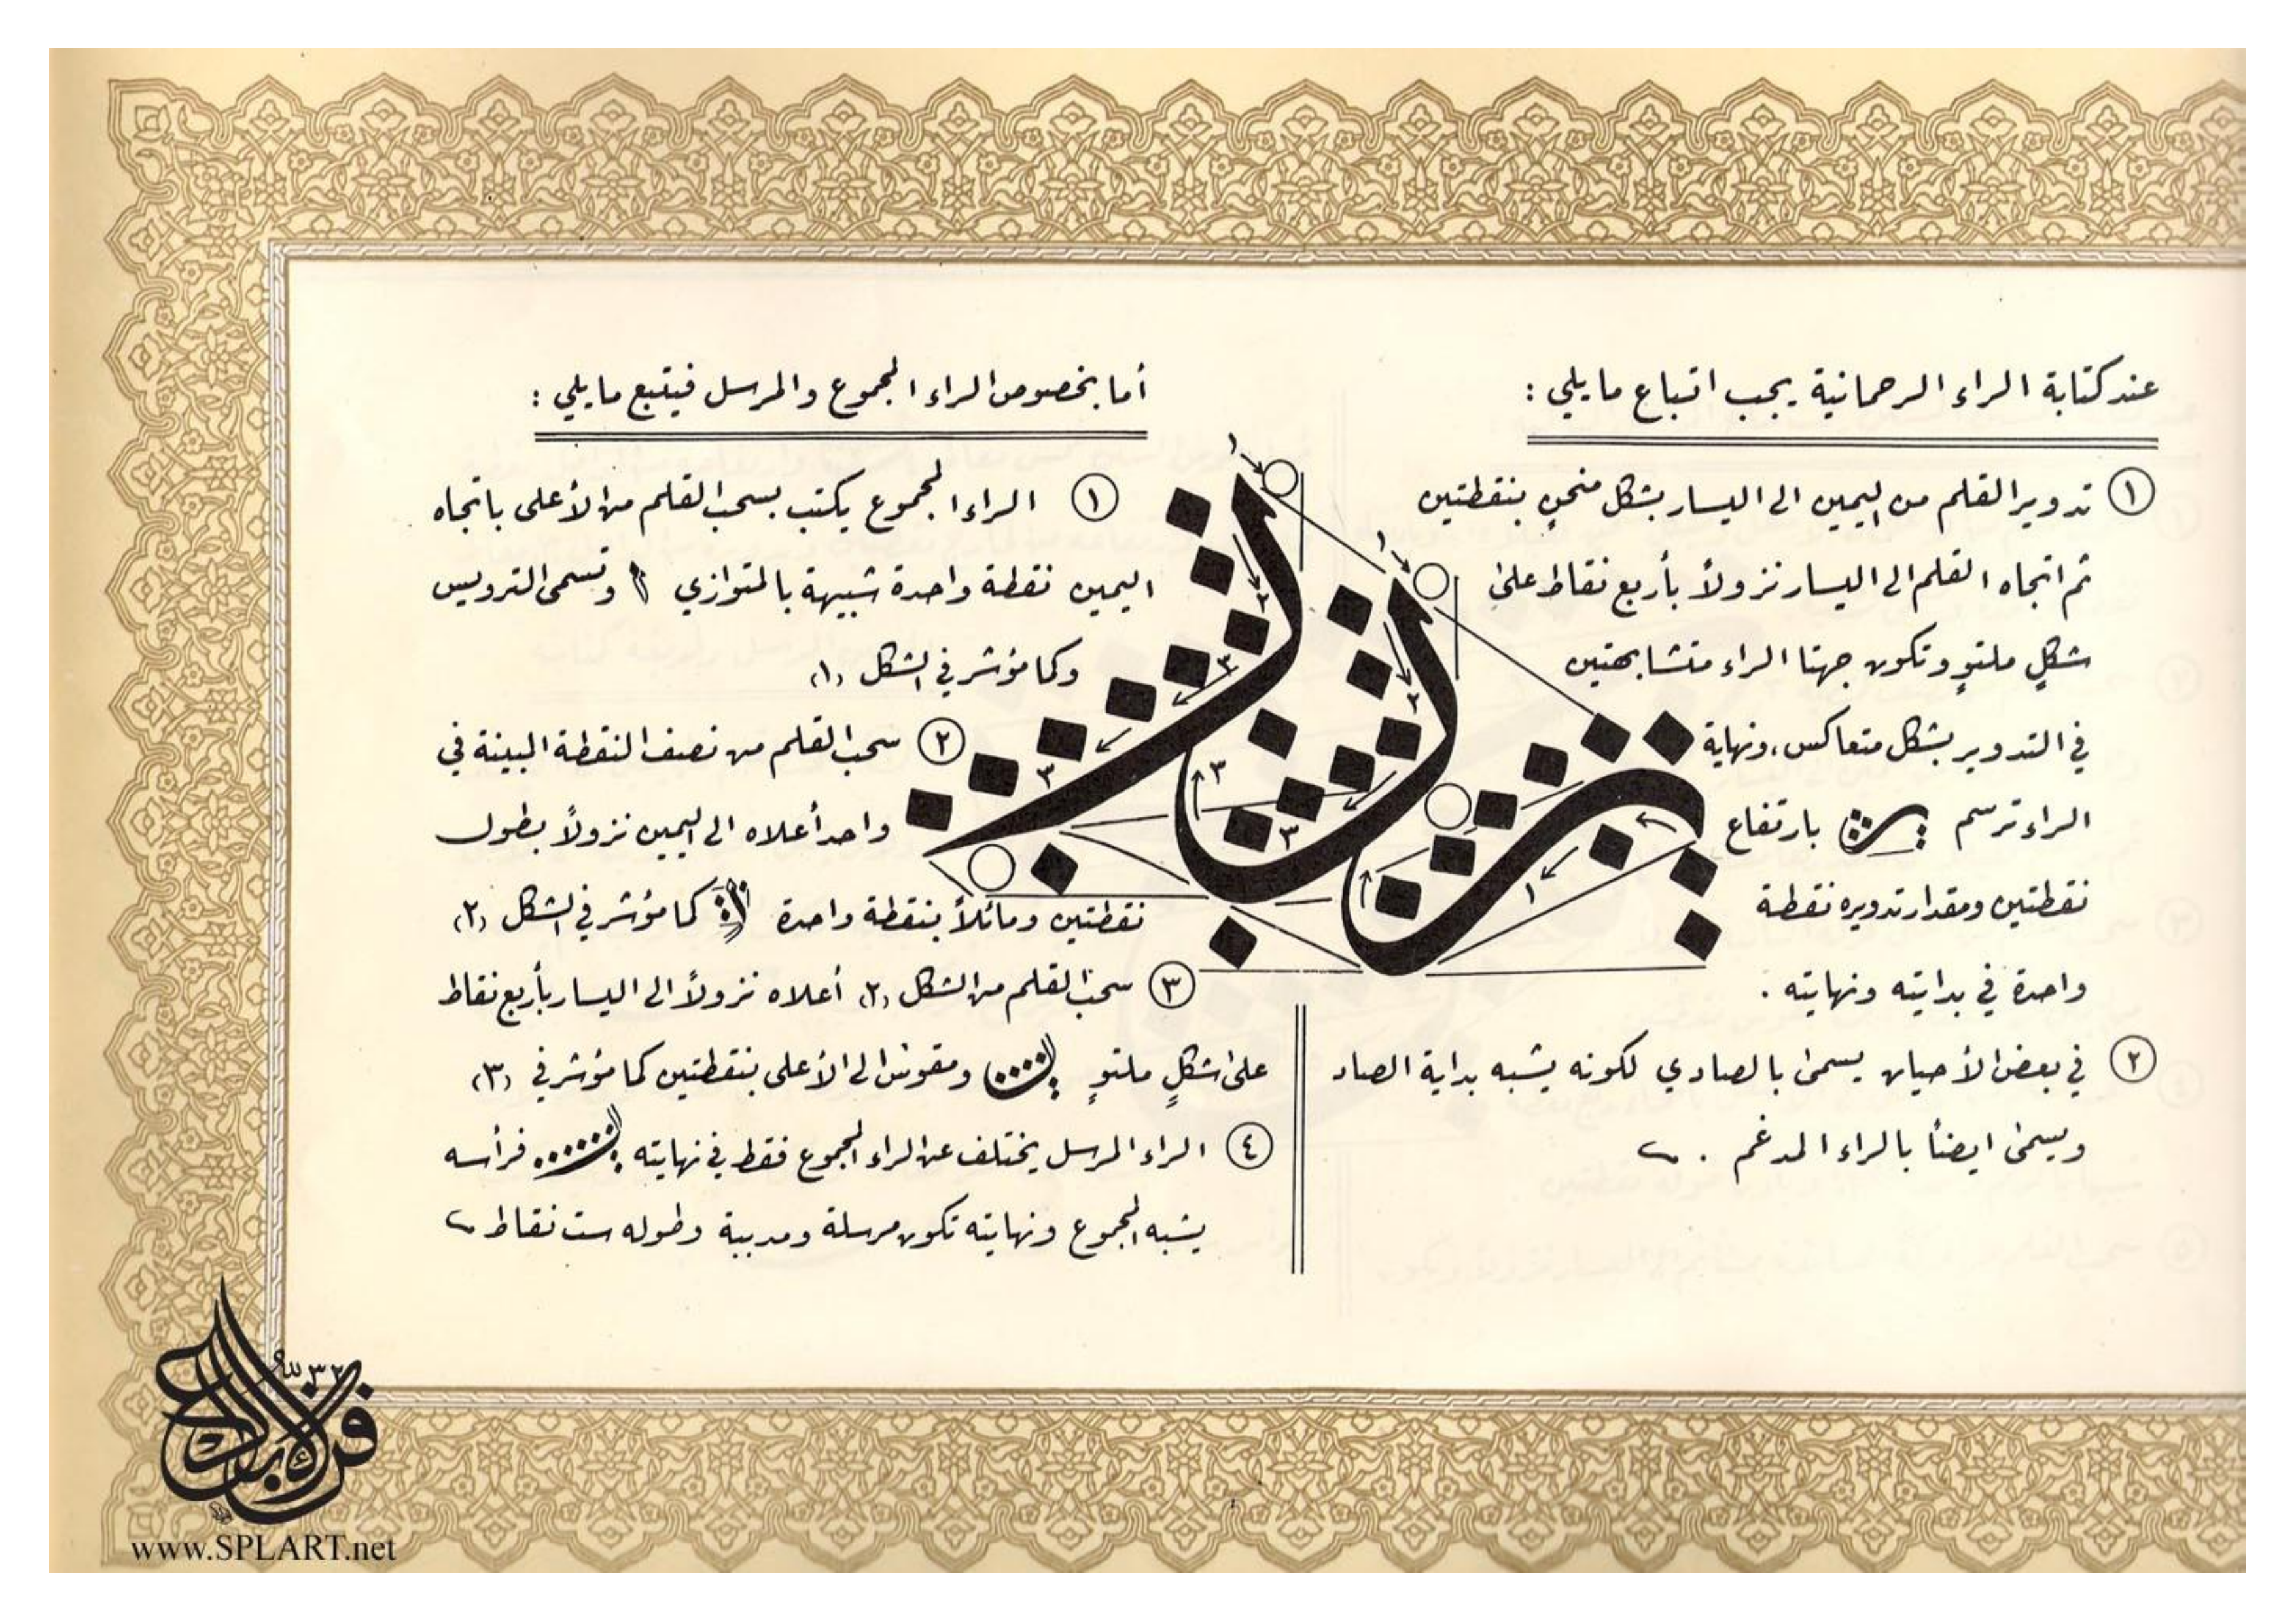 عند كتابة الراء الرحمانية يجب اتباع مايلي :
١ تدوير القلم من اليمين الى اليسار بشكل منحنٍ بنقطتين
ثم اتجاه القلم الى اليسار نزولاً بأربع نقاط على
شكلٍ ملتوٍ وتكون جهتا الراء متشابهتين
في التدوير بشكل متعاكس، ونهاية
الراء ترسم بارتفاع
نقطتين ومقدار تدويره نقطة
واحدة في بدايته ونهايته .
٢ في بعض الأحيان يسمى بالصادي لكونه يشبه بداية الصاد
ويسمى ايضاً بالراء المدغم .
أما بخصوص الراء المجموع والمرسل فيتبع مايلي :
١ الراء المجموع يكتب بسحب القلم من الأعلى باتجاه
اليمين نقطة واحدة شبيهة بالمتوازي وتسمى الترويس
وكما مؤشر في الشكل (١)
٢ سحب القلم من نصف النقطة المبينة في
واحد أعلاه الى اليمين نزولاً بطول
نقطتين ومائلاً بنقطة واحدة كما مؤشر في الشكل (٢)
٣ سحب القلم من الشكل (٢) أعلاه نزولاً الى اليسار بأربع نقاط
على شكلٍ ملتوٍ ومقوس الى الأعلى بنقطتين كما مؤشر في (٣)
٤ الراء المرسل يختلف عن الراء المجموع فقط في نهايته فرأسه
يشبه المجموع ونهايته تكون مرسلة ومدببة وطوله ست نقاط
١
٢
٣
٣
١
٢
٣
٣
١
٣٢
www.SPLART.net